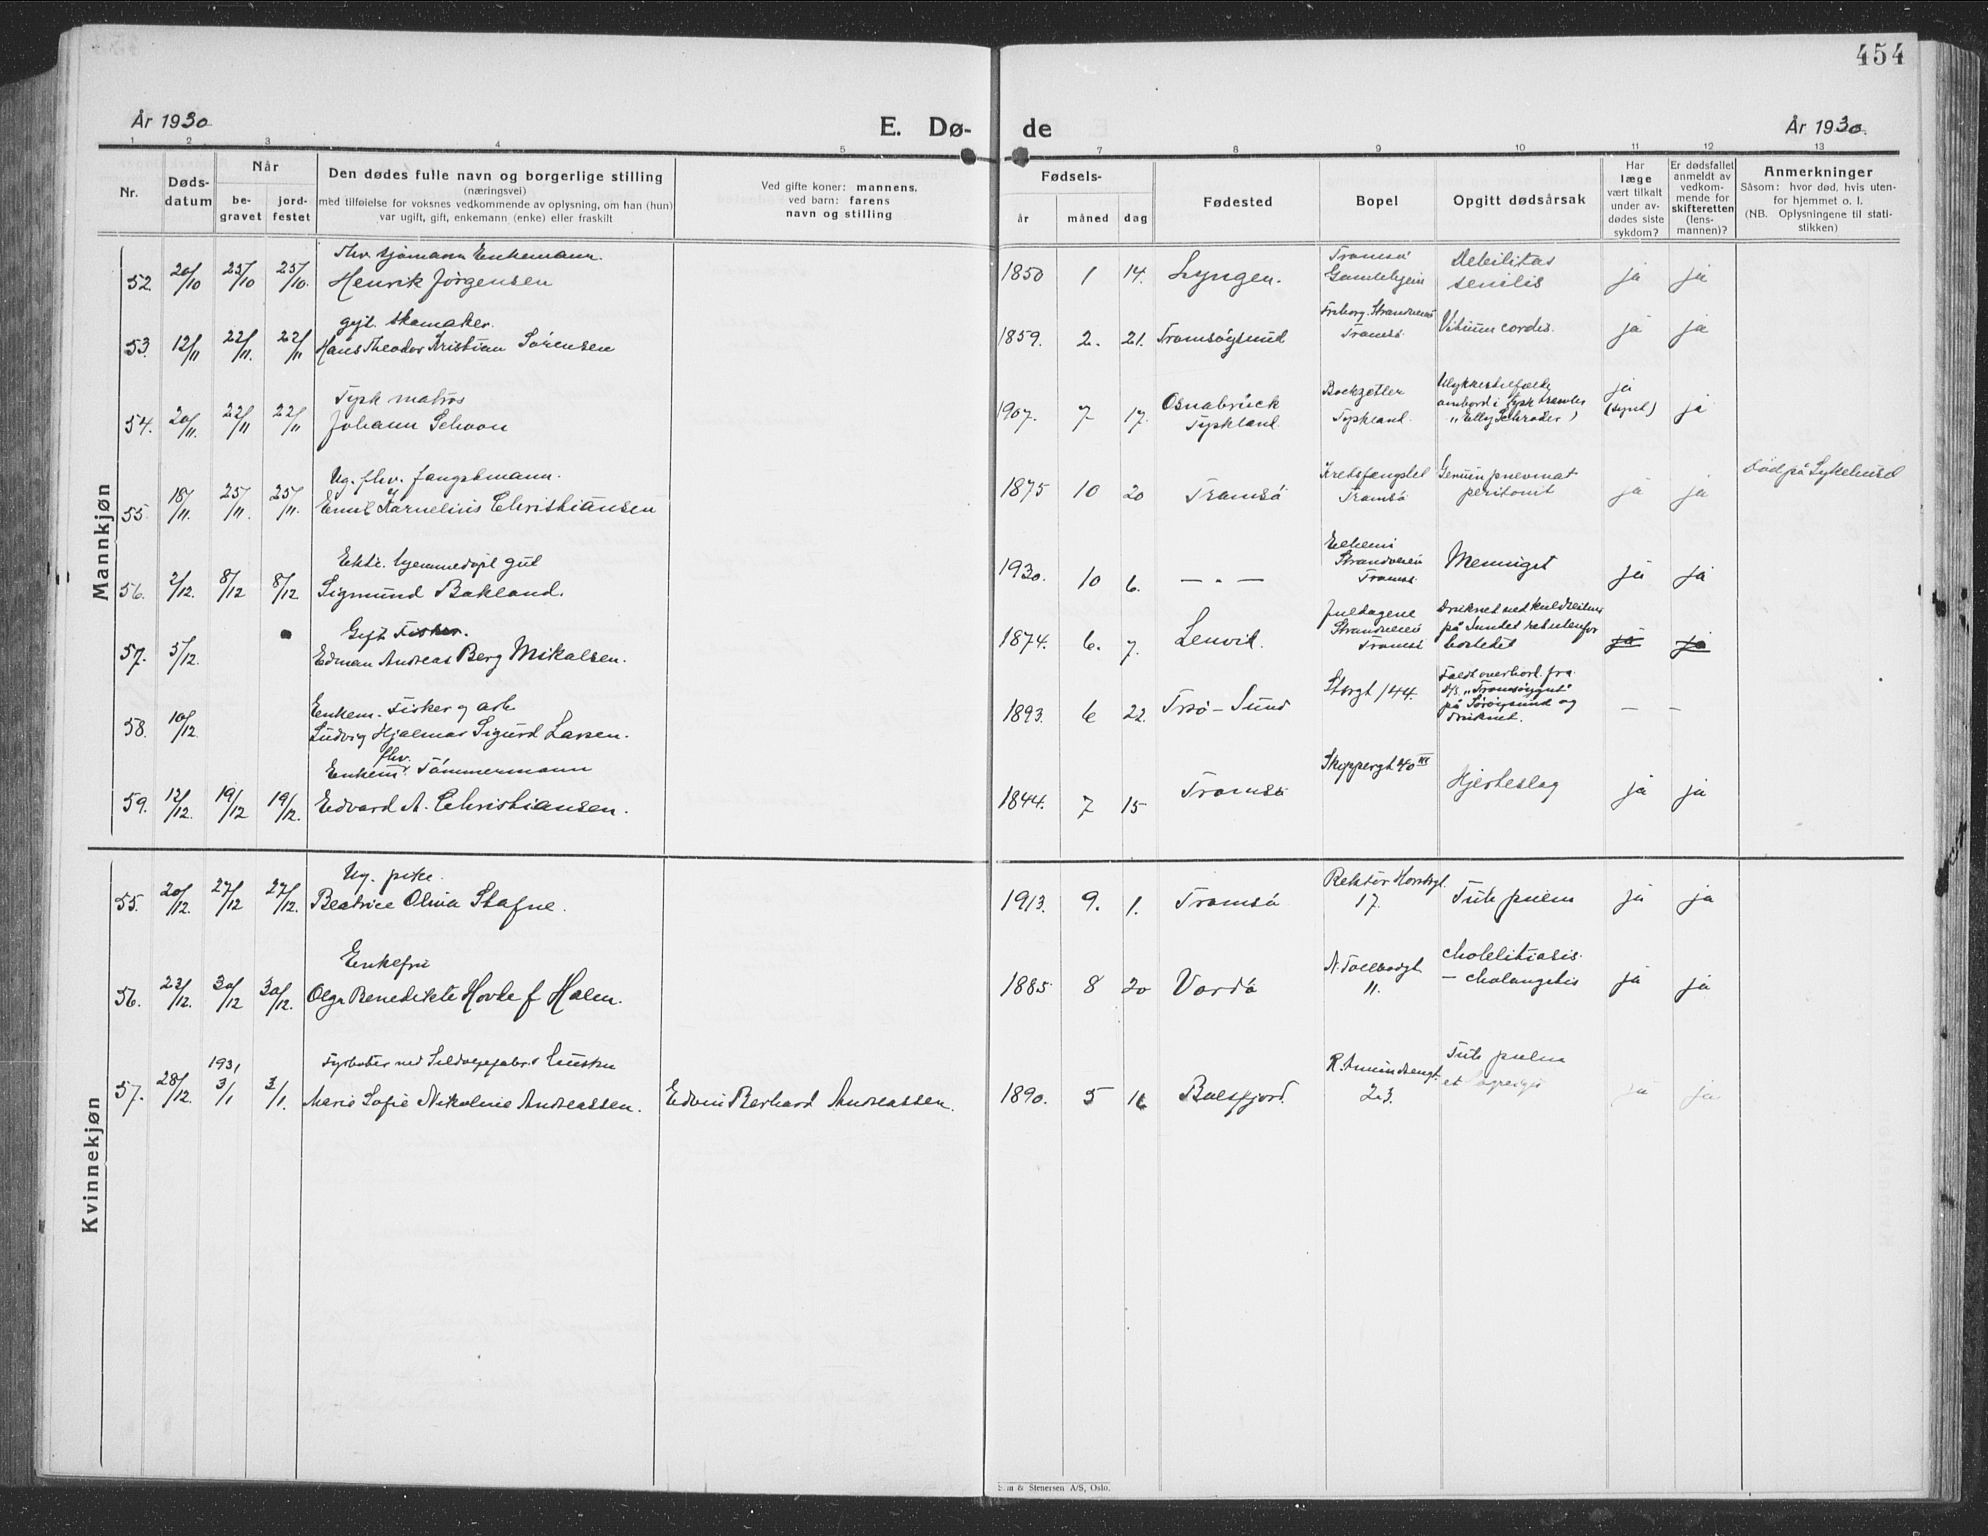 454
År 1930
E. Dø-
de
År 1930.
1 2 3 4 5 7 8 9 10 11 12 13
Nr.
Døds-
datum
Når
be-
gravet
jord-
festet
Den dødes fulle navn og borgerlige stilling
(næringsvei)
med tilføielse for voksnes vedkommende av oplysning, om han (hun)
var ugift, gift, enkemann (enke) eller fraskilt
Ved gifte koner: mannens,
ved barn: farens
navn og stilling
Fødsels-
år måned dag
Fødested
Bopel
Opgitt dødsårsak
Har
læge
vært tilkalt
under av-
dødes siste
sykdom?
Er dødsfallet
anmeldt av
vedkom-
mende for
skifteretten
(lens-
mannen)?
Anmerkninger
Såsom: hvor død, hvis uten-
for hjemmet o. l.
(NB. Oplysningene til stati-
stikken)
Mannkjøn
fhv. sjømann Enkemann.
52. 20/10 25/10 25/10. Henrik Jørgensen
1850 1 14. Lyngen.
Tromsø
Gamlehjem
Debilitas
senilis
ja ja
gift. skomaker.
53. 12/11 22/11. 22/11 Hans Theodor Kristian Sørensen
1859. 2. 21. Tromsøysund
Strandveien
Tromsø
Vitium cordis.
ja ja
Tysk matros
54. 20/11. 22/11 22/11 Johann Schoon
1907. 7 17. Osnabrück
Tyskland
Tyskland.
Ulykkestilfælde
ombord i tysk tråwler
"Elly Schröder"
ja
(synt)
ja
Ug. fhv. fangstmann.
55. 18/11. 25/11. 25/11. Emil Kornelius Christiansen
1875 10 20 Tromsø
Kretsfængslet
Tromsø
Genuin pnevmat
peritonit
ja ja
Død på Sykehuset
Ekte. hjemmedøpt gut
56. 2/12. 8/12 8/12 Sigmund Bakland.
1930. 10 6. — " —
Strandveien
Tromsø
Meninget
ja ja
Gift Fisker.
57. 5/12. Edman Andreas Berg Mikalsen.
1874. 6. 7. Lenvik.
Juldagene
Strandveien
Tromsø
Druknet ved
på Sundet
ja ja
Enkem. Fisker og arb
58. 10/12. Ludvig Hjalmar Sigurd Larsen.
1893. 6 22. Trsø-Sund
Storgt 144.
Faldt overbord fra
d/s. "Tromsøysund"
på Sørøysund og
druknet.
— —
fhv.
Enkem. Tømmermann
59. 12/12. 19/12 19/12. Edvard A. Christiansen.
1844. 7 15 Tromsø
Skippergt 40
Hjerteslag
ja ja
Kvinnekjøn
Ug. pike.
55. 20/12. 27/12 27/12. Beatrice Olivia Stafne.
1913. 9. 1. Tromsø
Rektor Horstsgt.
17.
Tub pulm
ja ja
Enkefru
56. 23/12. 30/12 30/12. Olga Benedikte Hovde f Holm.
1885 8 20 Vardø
N. Tollbodgt.
11.
cholelitiasis
— cholangitis
ja ja
1931
57. 28/12. 3/1 3/1. Marie Sofie Nikoline Andreassen.
Edvin Berhard Andreassen.
1890. 5 16 Balsfjord.
R. Amundsengt.
23.
Tub pulm
et
ja ja
& Stenersen A/S, Oslo.